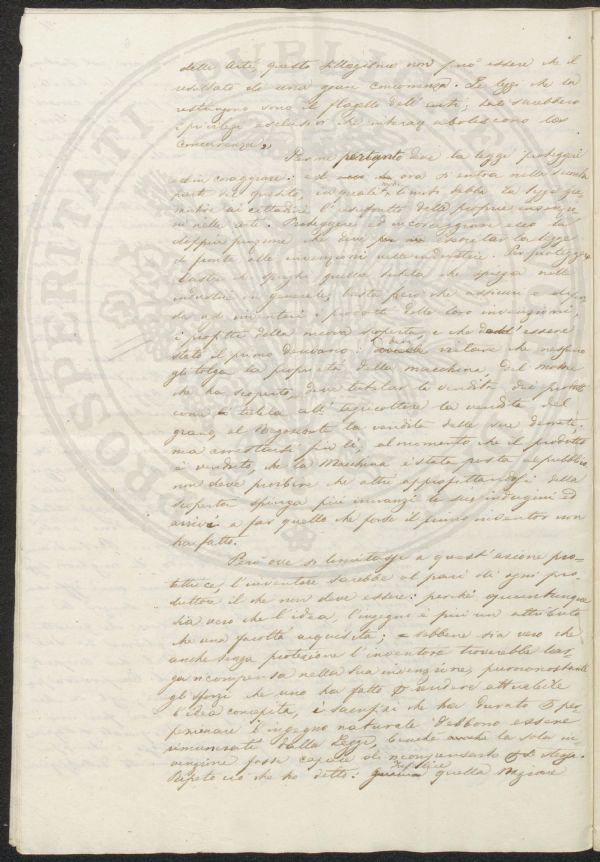 delle arti, questo sillogismo non può essere che il
resultato di una gran concorrenza. Le leggi che la
restringono sono il flagello dell'arti; tali sarebbero
i privilegi esclusivi che aboliscono la
concorrenza.
Per me pertanto deve la legge proteggere
ed incoraggiare: ed ora si entra nella seconda
parte del quesito, in quali limiti debba la legge
ai cittadini l'usufrutto delle proprie invenzioni
nelle arti. Proteggere ed incoraggiare ecco la
doppia funzione che deve esercitar la legge
di fronte alle invenzioni industriali. Per proteggere
basta si spieghi quella tutela che spiega nelle
industrie in generale, basta però che assicuri
ad inventori i prodotti delle loro invenzioni,
i profitti della nuova scoperta, e che dall'essere
stato il primo derivano: deve vietare che nessuno
gli tolga la proprietà della macchina, del motore
che ha scoperto, deve tutelar la vendita dei prodotti
come tutela all'agricoltore la vendita del
grano, al negoziante la vendita delle sue derrate;
ma arrestarsi più lì, al momento che il prodotto
è venduto, che la Macchina è stata posta al pubblico
non deve proibire che altri approfittandosi della
scoperta spinga più innanzi le sue indagini ed
arrivi a far quello che forse il primo inventor non
ha fatto.
Però ove si limitasse a quest'azione pro=
tettrice, l'inventore sarebbe al pari di ogni pro=
duttore il che non deve essere: perchè quantunque
sia vero che l'idea, l'ingegno è più un attributo
che una facoltà acquisita; e sebbene sia vero che
anche senza protezione l'inventore troverebbe lar
ga ricompensa nella sua invenzione, purnonostante
gli sforzi che uno ha fatto p. rendere attuabile
l'idea concepita, i sacrifizi che ha durato p. per
fezionare l'ingegno naturale debbono essere
rimunerati dalla Legge, benchè anche la sola in
venzione fosse capace di ricompensarlo p. se stessa.
Ripeto ciò che ho detto: quella Nazione